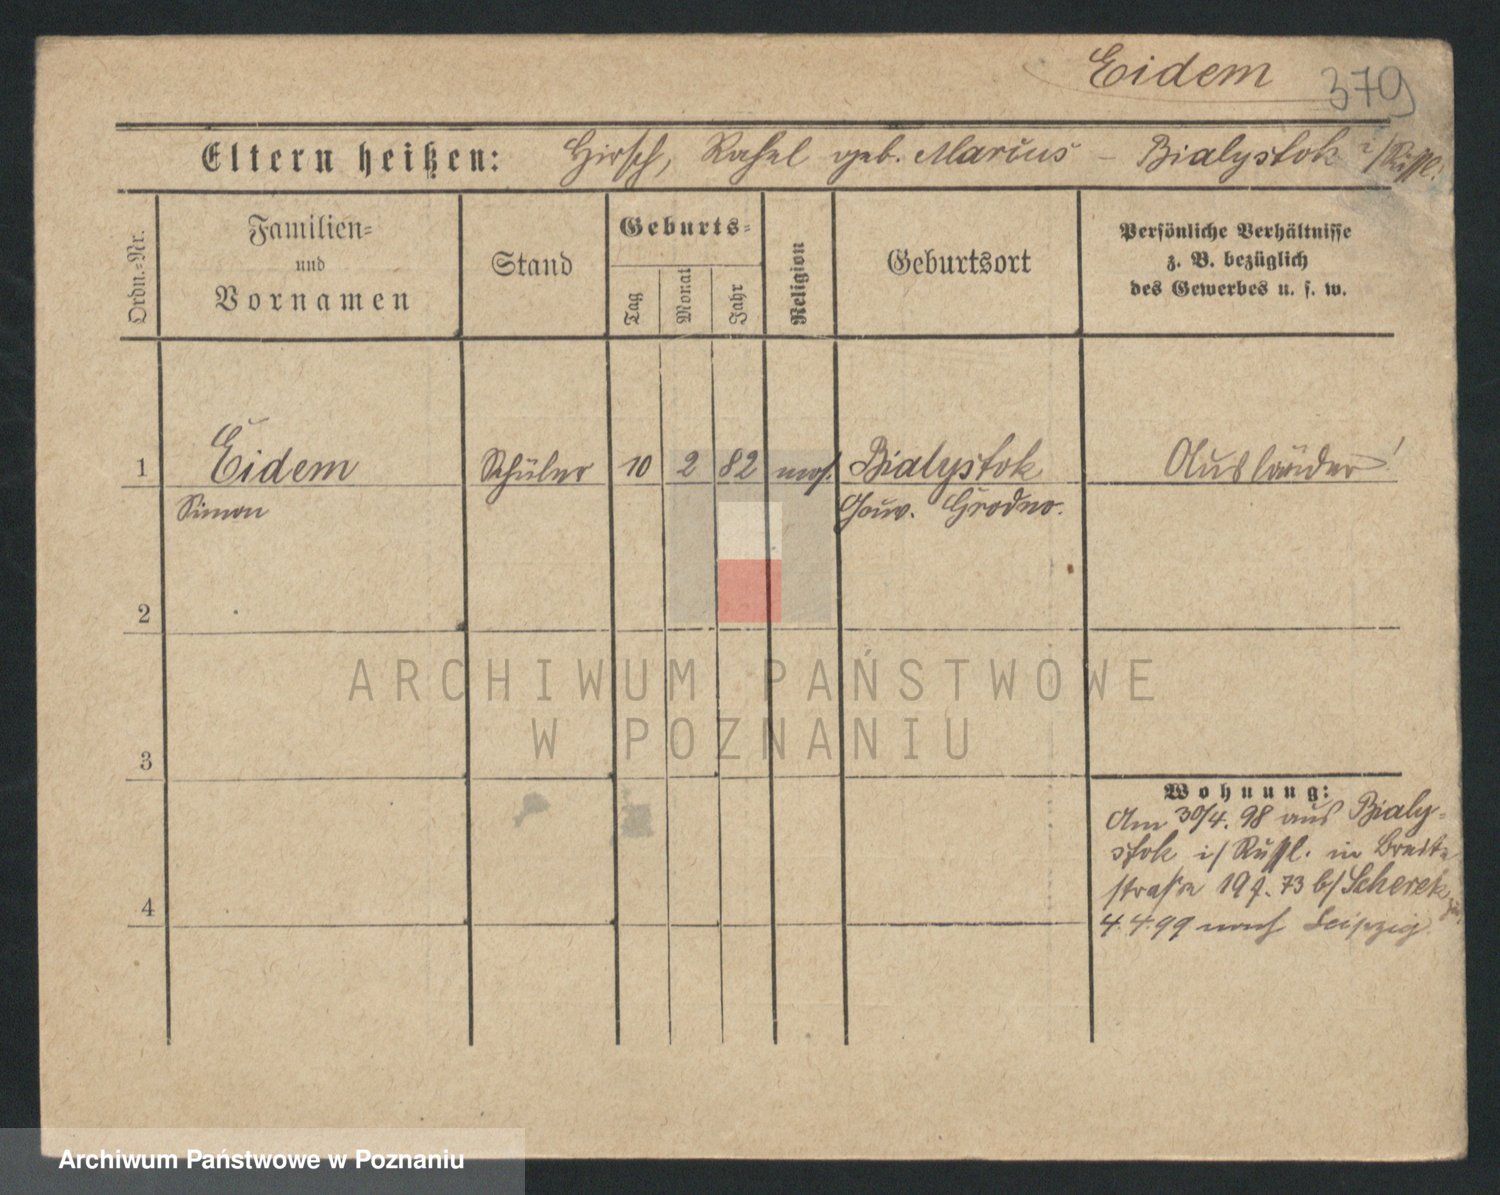 Eidem 379
Eltern heißen: Hirsch, Rahel geb. Marcus - Bialystok i/Russl.
Ordn.=Nr.
Familien=
und
Vornamen
Stand
Geburts=
Tag
Monat
Jahr
Religion
Geburtsort
Persönliche Verhältnisse
z. B. bezüglich
des Gewerbes u. s. w.
1 Eidem Schüler 10 2 82 mos. Bialystok Ausländer!
Simon Gouv. Grodno.
2
3
4
Wohnung:
Am 30/4. 98 aus Bialy-
stok i/ Russl. in Breite
straße 19 73 b/ Scherek
4. 4. 99 nach Leipzig.
ARCHIWUM PAŃSTWOWE
W POZNANIU
Archiwum Państwowe w Poznaniu